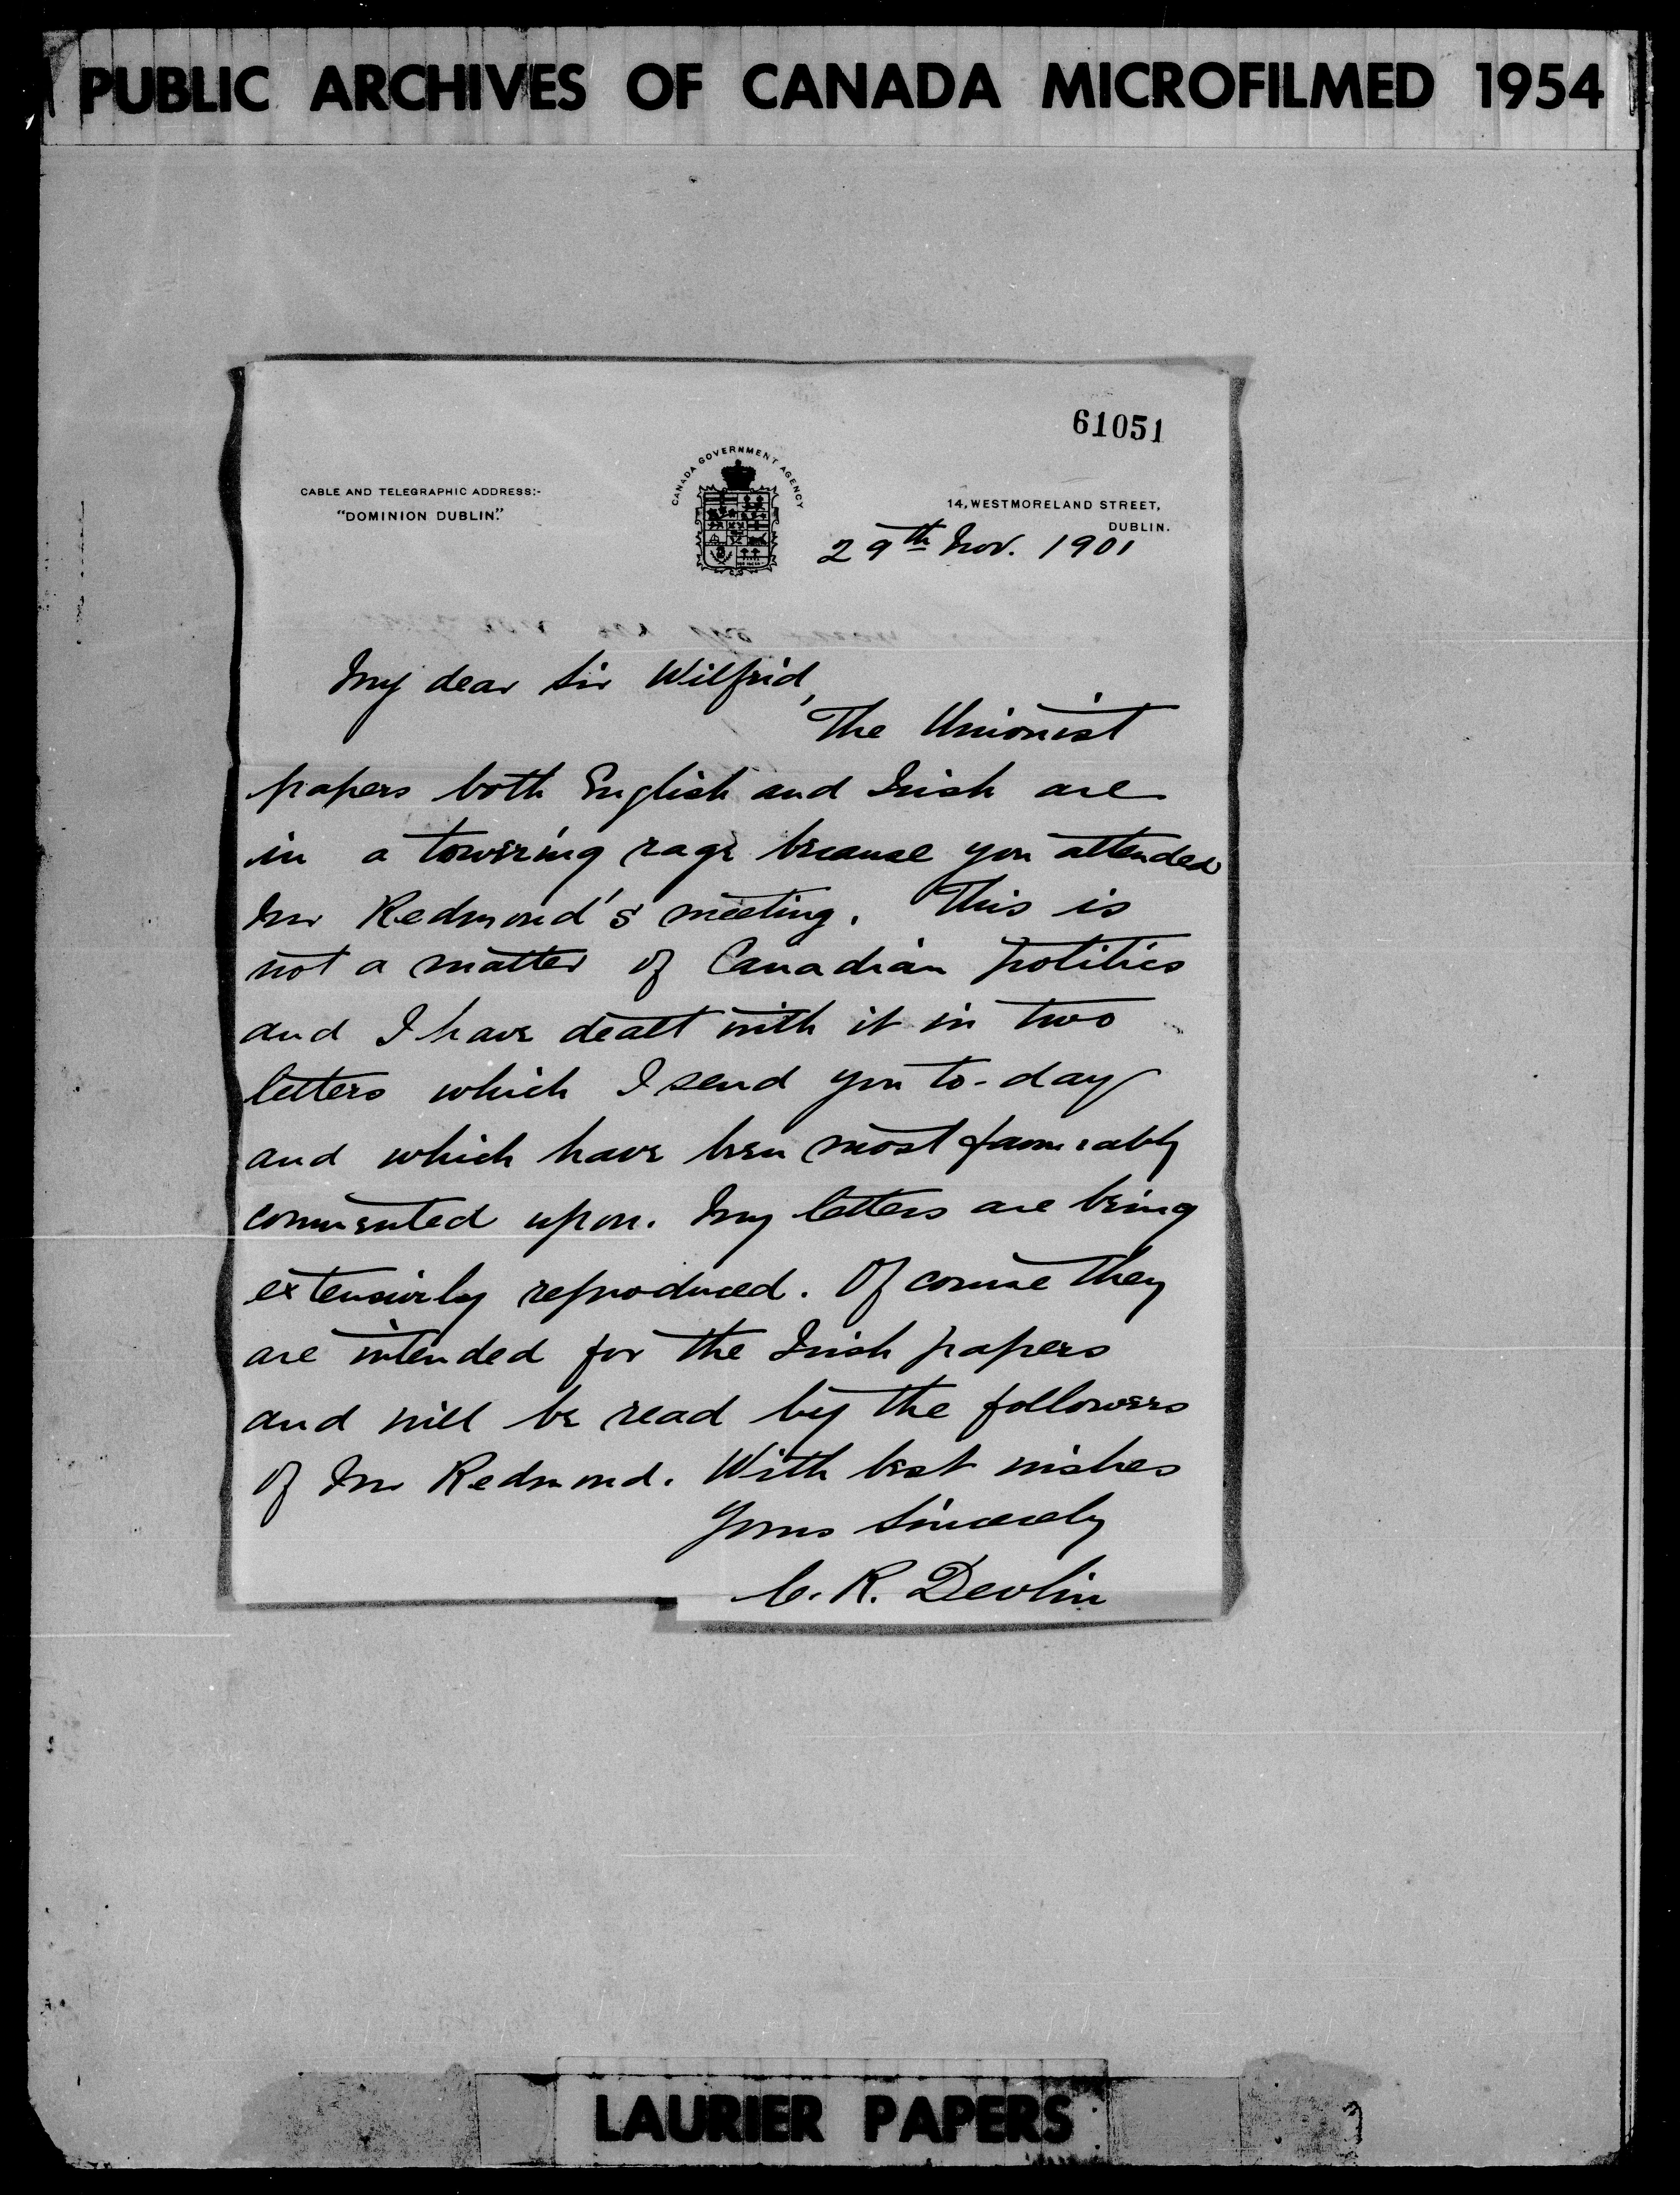 PUBLIC ARCHIVES OF CANADA MICROFILMED 1954
61051
CANADA GOVERNMENT AGENCY
CABLE AND TELEGRAPHIC ADDRESS:-
"DOMINION DUBLIN."
14, WESTMORELAND STREET,
DUBLIN.
29th Nov. 1901
My dear Sir Wilfrid,
The Unionist
papers both English and Irish are
in a towering rage because you attended
Mr Redmond's meeting. This is
not a matter of Canadian politics
and I have dealt with it in two
letters which I send you to-day
and which have been most favourably
commented upon. My letters are being
extensively reproduced. Of course they
are intended for the Irish papers
and will be read by the followers
of Mr Redmond. With best wishes
Yours Sincerely
C. R. Devlin
LAURIER PAPERS